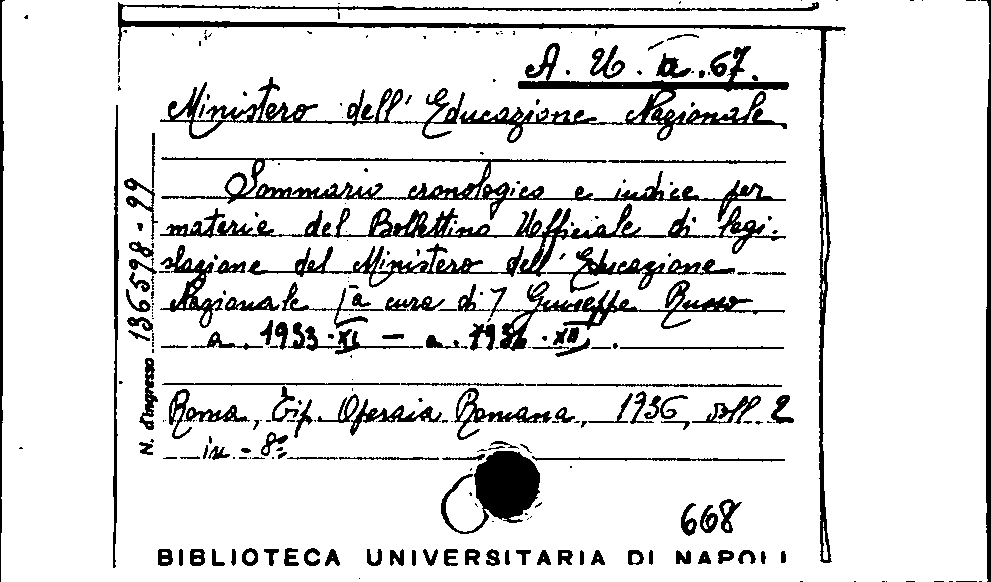 A. U. IX. 67.
Ministero dell' Educazione Nazionale.
Sommario cronologico e indice per
materie del Bollettino Ufficiale di legi-
slazione del Ministero dell' Educazione
Nazionale [a cura di] Giuseppe Russo
a. 1933-XI — a. 1934-XII.
Roma, Tip. Operaia Romana, 1936, voll. 2
in-8º
N. d'Ingresso 136598-99
668
BIBLIOTECA UNIVERSITARIA DI NAPOLI